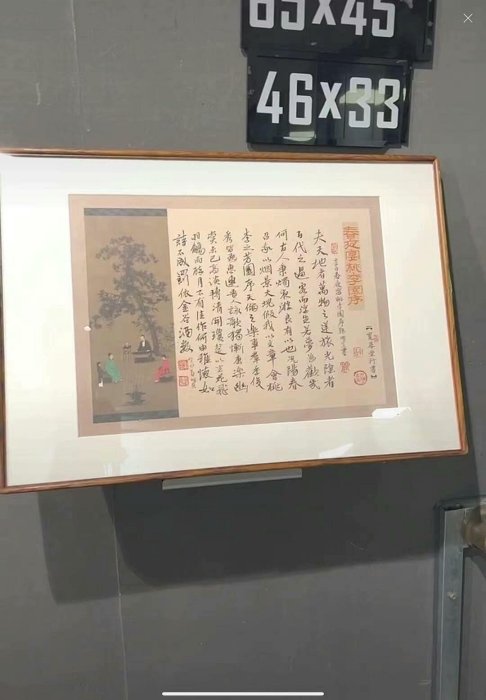 85x45
46x33
春夜宴桃李園序
夫天地者萬物之逆旅光陰者
百代之過客而浮生若夢為歡幾
何古人秉燭夜遊良有以也況陽春
召我以煙景大塊假我以文章會桃
李之芳園序天倫之樂事群季俊
秀皆為惠連吾詠歌獨慚康樂幽
賞未已高談轉清開瓊筵以坐花飛
羽觴而醉月不有佳作何伸雅懷如
詩不成罰依金谷酒數